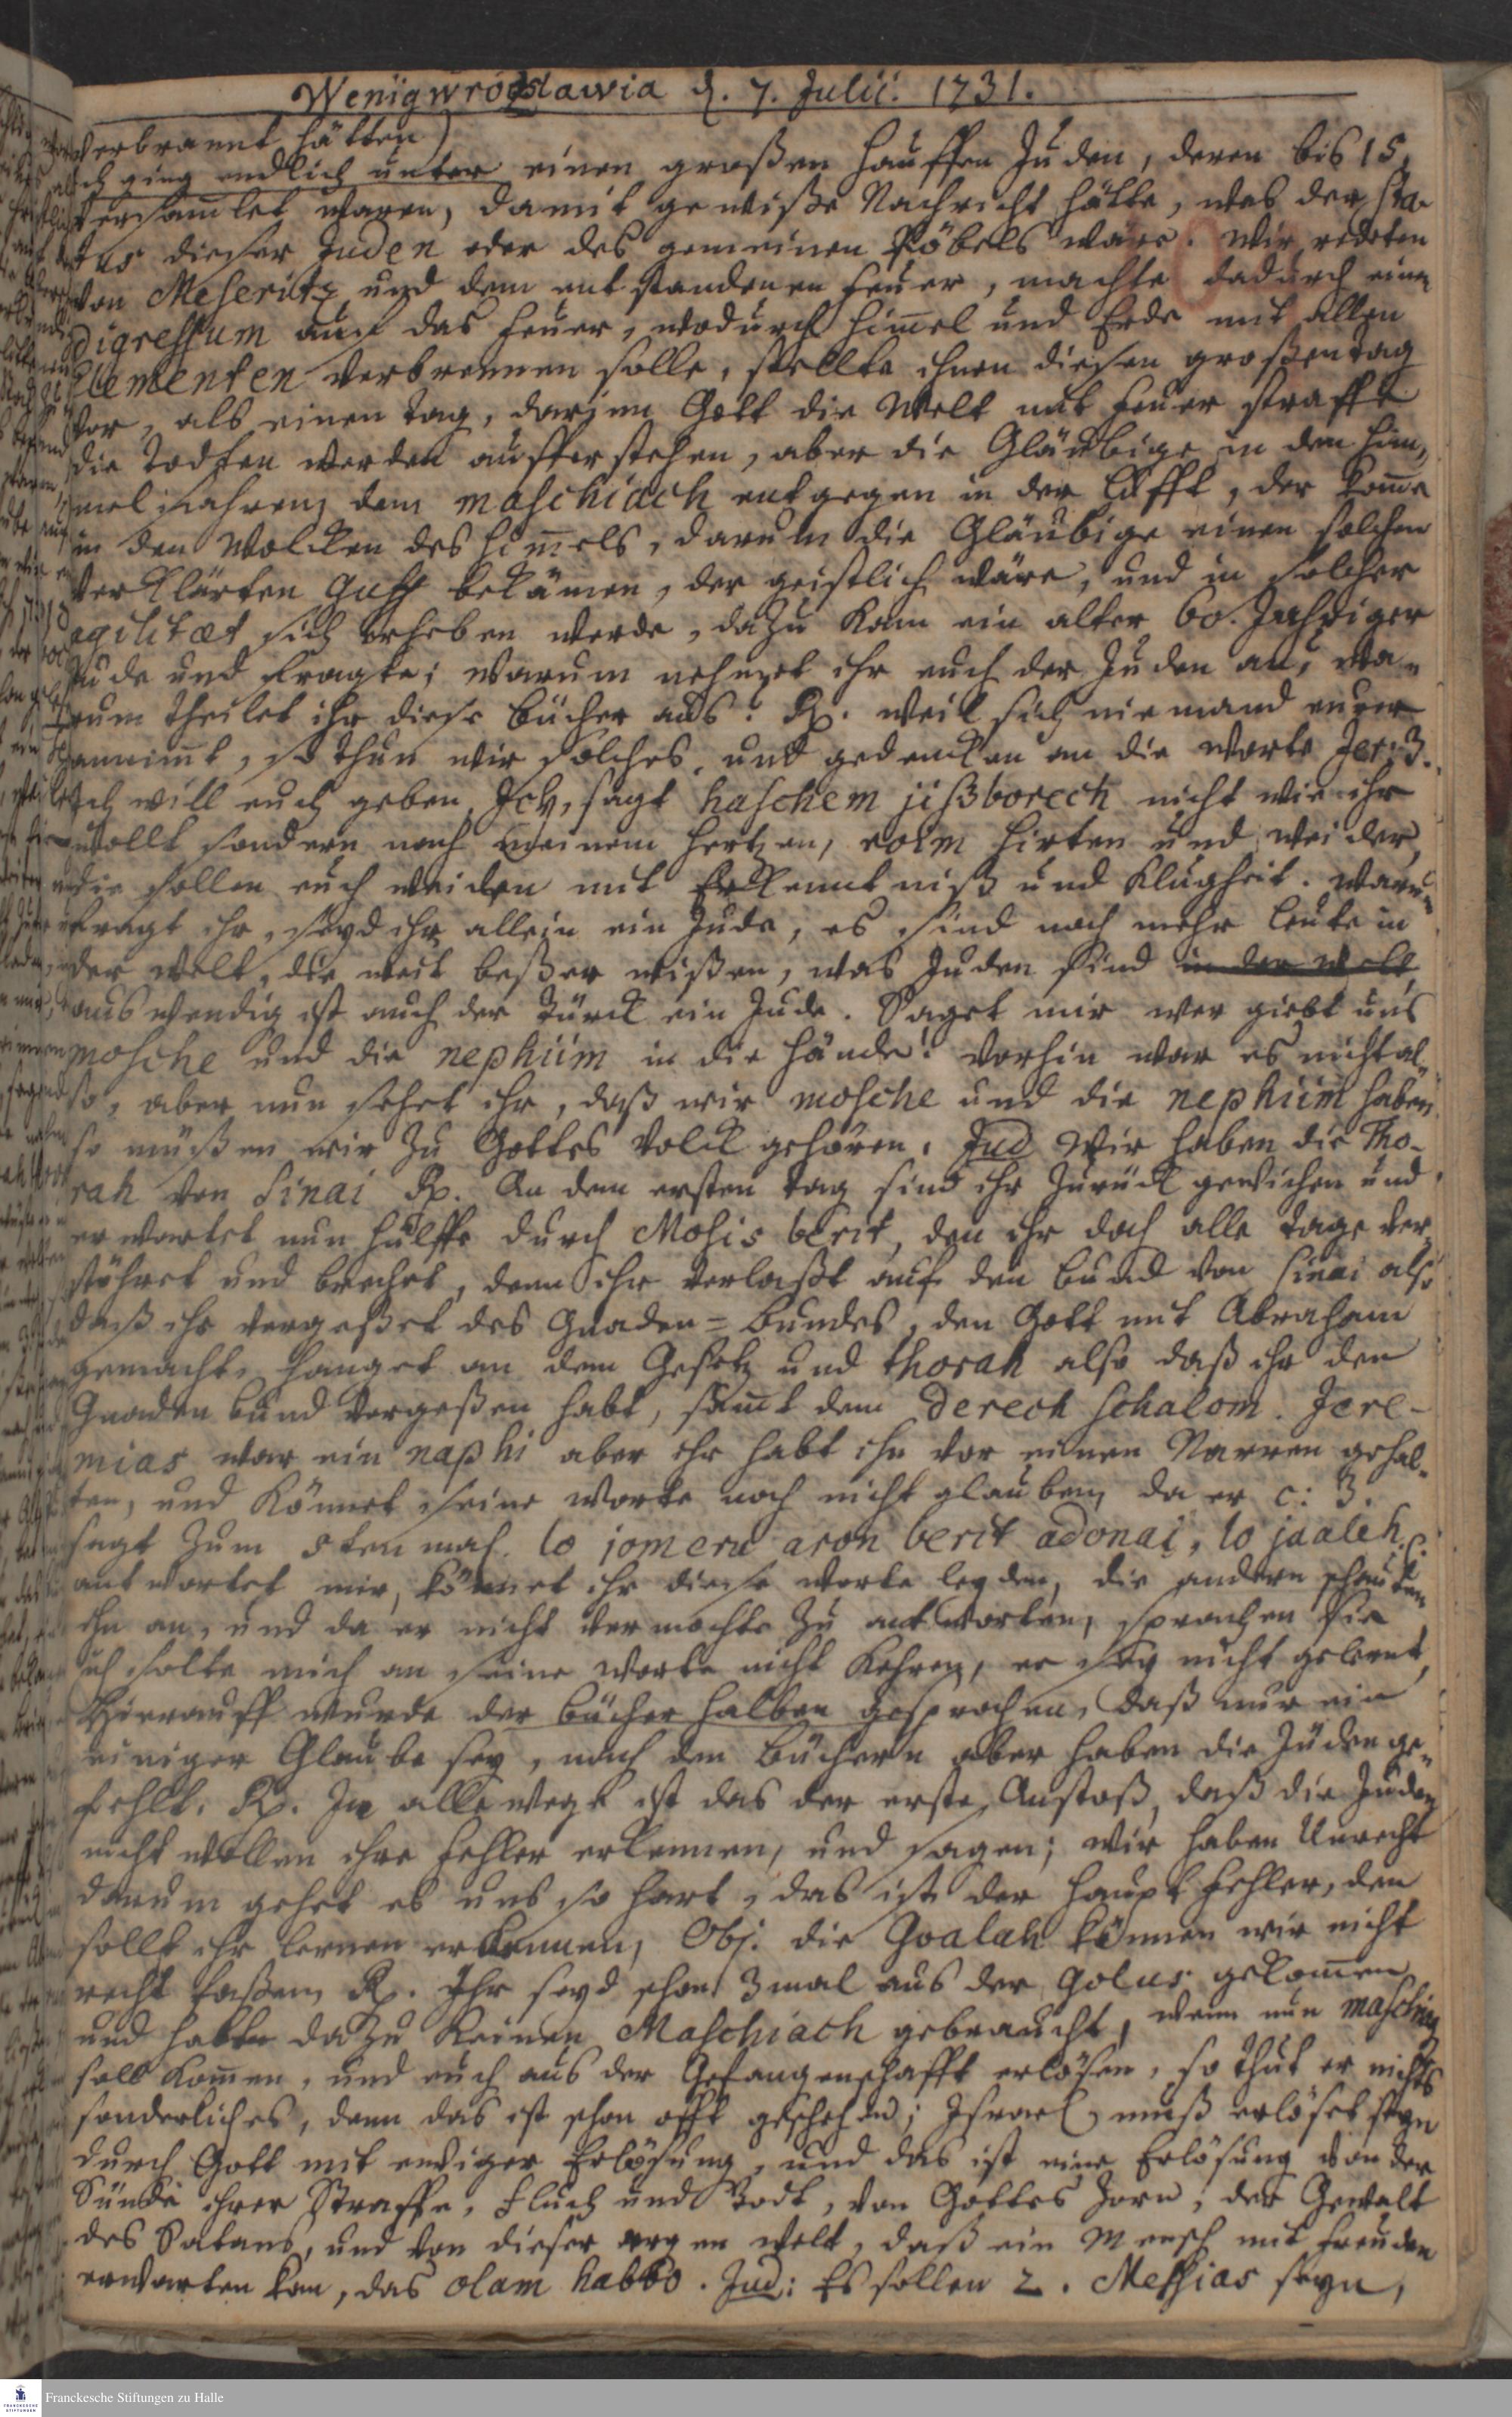 Wenigwrozlawia d. 7. Julii. 1731.
verbrannt hätten)
ich ging endlich unter einen großen Hauffen Juden, deren bis 15.
versam̄let waren, damit gewiße Nachricht hätte, was der sta-
tus dieser Juden oder des gemeinen Pöbels wäre. Wir redeten
von Meseritz und dem entstandenen Feuer, machte dadurch einen
digressum auf das Feuer, wodurch Him̄el und Erde mit allen
Elementen verbrennen solle, stellte ihnen diesen großen Tag
vor, als einen Tag, darinn Gott die Welt mit Feuer straffe
die Todten werden aufferstehen, aber die Gläubige in den Him-
mel fahren, dem maschiach entgegen in der Lufft, der kom̄e
in den Wolcken des Him̄els, darum die Gläubige einen solchen
verklärten guff bekämen, der geistlich wäre, und in solcher
agilitæt sich erheben werde, dazu kam ein alter 60. Jahriger
Jude und fragte; warum nehmet ihr euch der Juden an, wa-
rum theilet ihr diese Bücher aus? Rp. weil sich niemand eurer
annim̄t, so thun wir solches, und gedencken an die Worte Jer: 3.
Ich will euch geben, Ich, sagt haschem jißborech nicht wie ihr
wollt sondern nach meinem Hertzen, roim Hirten und Weider,
die sollen euch weiden mit Erkenntniß und Klugheit. Warum
fragt ihr, seyd ihr allein ein Jude, es sind noch mehr Leute in
der Welt, die weit beßer wißen, was Juden sind in der Welt,
auswendig ist auch der Türck ein Jude. Saget mir wer giebt uns
mosche und die nephiim in die Hände? vorhin war es nicht al-
so, aber nun sehet ihr, daß wir mosche und die nephiim haben,
so müßen wir zu Gottes Volck gehören. Jud Wir haben die Tho-
rah von Sinai Rp. An dem ersten Tag sind ihr zurück gewichen und
erwartet nun Hülffe durch Mosis berit, den ihr doch alle Tage ver-
stöhret und brechet, denn ihr verlaßt auf den Bund von Sinai also
daß ihr vergeßet des Gnaden-Bundes, den Gott mit Abraham
gemacht, hanget an dem Gesetz und thorah also daß ihr den
Gnadenbund vergeßen habt, sam̄t dem derech schalom. Jere-
mias war ein naphi aber ihr habt ihn vor einen Narren gehal-
ten, und könnet seine Worte noch nicht glauben, da er c: 3.
sagt zum 5ten mal. lo jomeru aron berit adonai, lo jaaleh.
antwortet mir, könnet ihr diese Worte leyden, die andern schauten
ihn an, und da er nicht vermochte zu antworten, sprachen sie
ich solte mich an seine Worte nicht kehren, er sey nicht gelernt,
Hierauff wurde der Bücher halben gesprochen, daß nur ein
einiger Glaube sey, nach den Büchern aber haben die Juden ge-
fehlt. Rp. In alle wege ist das der erste Anstoß, daß die Juden
nicht wollen ihre Fehler erkennen, und sagen; wir haben Unrecht
darum gehet es uns so hart, das ist der Haupt Fehler, den
sollt ihr lernen erkennen, Obj. die Goalah können wir nicht
recht faßen, Rp. Ihr seyd schon 3 mal aus der Golus gekom̄en
und habt dazu keinen Maschiach gebraucht, wenn nun maschiach
soll kom̄en, und euch aus der Gefangenschafft erlösen, so thut er nichts
sonderliches, denn das ist schon offt geschehen; Israel muß erlöset seyn
durch Gott mit ewiger Erlösung, und das ist eine Erlösung von der
Sünde ihrer Straffe, Fluch und Todt, von Gottes Zorn, der Gewalt
des Satans, und von dieser argen Welt, daß ein Mensch mit Freuden
erwarten kan, das olam habbo. Jud: Es sollen 2. Messias seyn,
Franckesche Stiftungen zu Halle